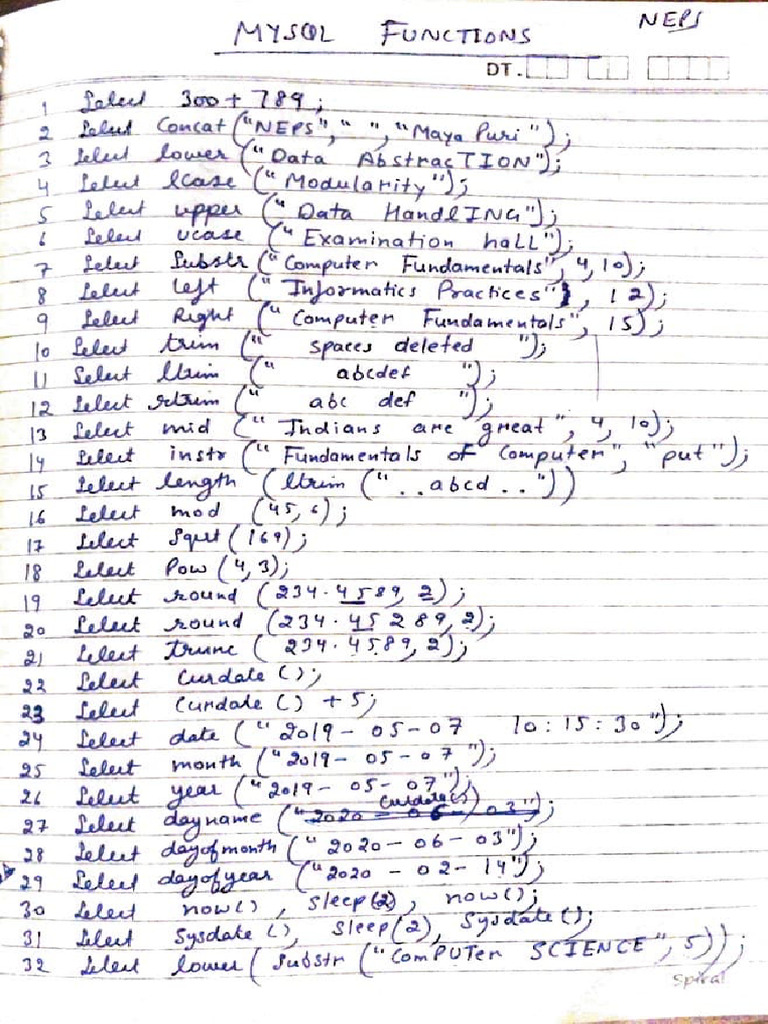 NEPS
MYSQL FUNCTIONS
DT.
1 Select 300 + 789;
2 Select Concat ("NEPS", " ", "Maya Puri");
3 Select lower ("Data AbstracTION");
4 Select lcase ("Modularity");
5 Select upper ("Data HandlING");
6 Select ucase ("Examination hall");
7 Select Substr ("Computer Fundamentals", 4, 10);
8 Select left ("Informatics Practices", 12);
9 Select Right ("Computer Fundamentals", 15);
10 Select trim (" spaces deleted ");
11 Select ltrim (" abcdef ");
12 Select rtrim (" abc def ");
13 Select mid ("Indians are great", 4, 10);
14 Select instr ("Fundamentals of Computer", "put");
15 Select length (ltrim ("..abcd.."))
16 Select mod (45, 6);
17 Select Sqrt (169);
18 Select Pow (4, 3);
19 Select round (234.4589, 2);
20 Select round (234.45289, 2);
21 Select trunc (234.4589, 2);
22 Select Curdate ();
23 Select Curdate () + 5;
24 Select date ("2019-05-07 10:15:30");
25 Select month ("2019-05-07");
26 Select year ("2019-05-07");
curdate()
27 Select dayname ("2020-06-03");
28 Select dayofmonth ("2020-06-03");
29 Select dayofyear ("2020-02-14");
30 Select now(), Sleep(2), now();
31 Select Sysdate (), Sleep(2), Sysdate();
32 Select lower( Substr ("ComPUTer SCIENCE", 5));
Spiral